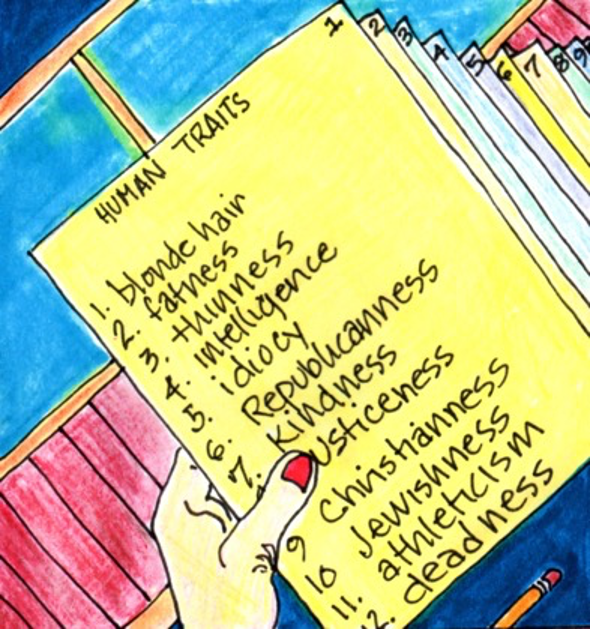 1 2 3 4 5 6 7 8 9
HUMAN TRAITS
1. blonde hair
2. fatness
3. thinness
4. intelligence
5. idiocy
6. Republicanness
7. kindness
usticeness
9 Christianness
10 Jewishness
11. athleticism
12. deadness